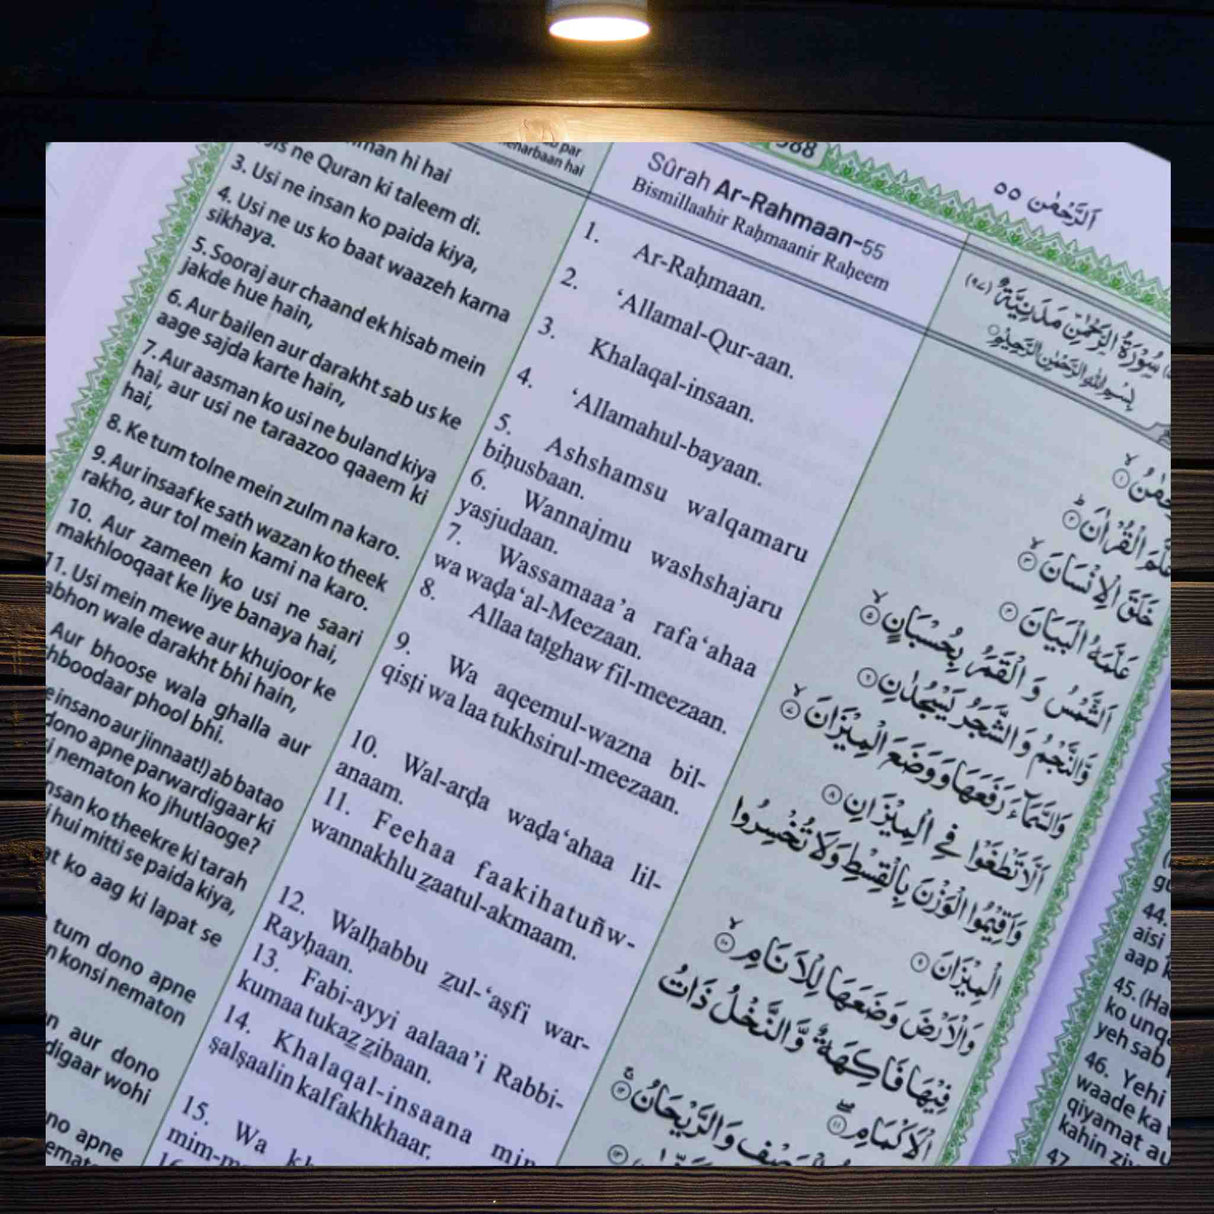 man hi hai
ne Quran ki taleem di.
3. Usi ne insan ko paida kiya,
4. Usi ne us ko baat waazeh karna
sikhaya.
5. Sooraj aur chaand ek hisab mein
jakde hue hain,
6. Aur bailen aur darakht sab us ke
aage sajda karte hain,
7. Aur aasman ko usi ne buland kiya
hai, aur usi ne taraazoo qaaem ki
hai,
8. Ke tum tolne mein zulm na karo.
9. Aur insaaf ke sath wazan ko theek
rakho, aur tol mein kami na karo.
10. Aur zameen ko usi ne saari
makhlooqaat ke liye banaya hai,
11. Usi mein mewe aur khujoor ke
wale darakht bhi hain,
Aur bhoose wala ghalla aur
phool bhi.
insano aur jinnaat!) ab batao
dono apne parwardigaar ki
nematon ko jhutlaoge?
ko theekre ki tarah
hui mitti se paida kiya,
ko aag ki lapat se
tum dono apne
konsi nematon
aur dono
wohi
apne
par
meharbaan hai
Sûrah Ar-Rahmaan-55
Bismillaahir Raḥmaanir Raḥeem
1. Ar-Raḥmaan.
2. ‘Allamal-Qur-aan.
3. Khalaqal-insaan.
4. ‘Allamahul-bayaan.
5. Ashshamsu walqamaru
biḥusbaan.
6. Wannajmu washshajaru
yasjudaan.
7. Wassamaaa’a rafa‘ahaa
wa waḍa‘al-Meezaan.
8. Allaa taṭghaw fil-meezaan.
9. Wa aqeemul-wazna bil-
qisṭi wa laa tukhsirul-meezaan.
10. Wal-arḍa waḍa‘ahaa lil-
anaam.
11. Feehaa faakihatuñw-
wannakhlu z̲aatul-akmaam.
12. Walḥabbu z̲ul-‘aṣfi war-
Rayḥaan.
13. Fabi-ayyi aalaaa’i Rabbi-
kumaa tukaz̲z̲ibaan.
14. Khalaqal-insaana min
ṣalṣaalin kalfakhkhaar.
15. Wa
588
اَلرَّحْمٰن ٥٥
سُوْرَةُ الرَّحْمٰنِ مَدَنِيَّةٌ (٩٧)
بِسْمِ اللهِ الرَّحْمٰنِ الرَّحِيْمِ
الْقُرْاٰنَ ۟ؕ
خَلَقَ الْاِنْسَانَ ۟ۙ
عَلَّمَهُ الْبَيَانَ ۟
اَلشَّمْسُ وَ الْقَمَرُ بِحُسْبَانٍ ۟ۙ
وَّالنَّجْمُ وَ الشَّجَرُ يَسْجُدٰنِ ۟
وَالسَّمَآءَ رَفَعَهَا وَوَضَعَ الْمِيْزَانَ ۟ۙ
اَلَّا تَطْغَوْا فِي الْمِيْزَانِ ۟
وَاَقِيْمُوا الْوَزْنَ بِالْقِسْطِ وَلَا تُخْسِرُوا
الْمِيْزَانَ ۟
وَالْاَرْضَ وَضَعَهَا لِلْاَنَامِ ۟ۙ
فِيْهَا فَاكِهَةٌ وَّالنَّخْلُ ذَاتُ
الْاَكْمَامِ ۟ۖ
وَالرَّيْحَانُ ۟ۚ
44.
aisi
aap
45. (Ha
ko unq
yeh sab
46. Yehi
waade ka
qiyamat
kahin
47